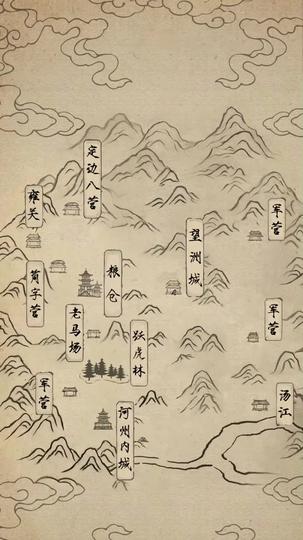 定边八营
雍关
军营
望洲城
粮仓
简字营
老马场
跃虎林
军营
军营
汤江
河州内城